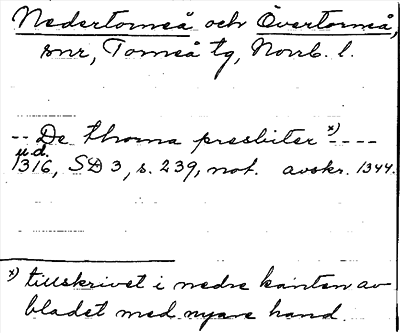 Nedertorneå och Övertorneå,
snr, Torneå tg, Norrb. l.
-- De thorna presbiter x) ----
u.d.
1316, SD 3, s. 239, not. avskr. 1344.
x) tillskrivet i nedre kanten av
bladet med nyare hand.